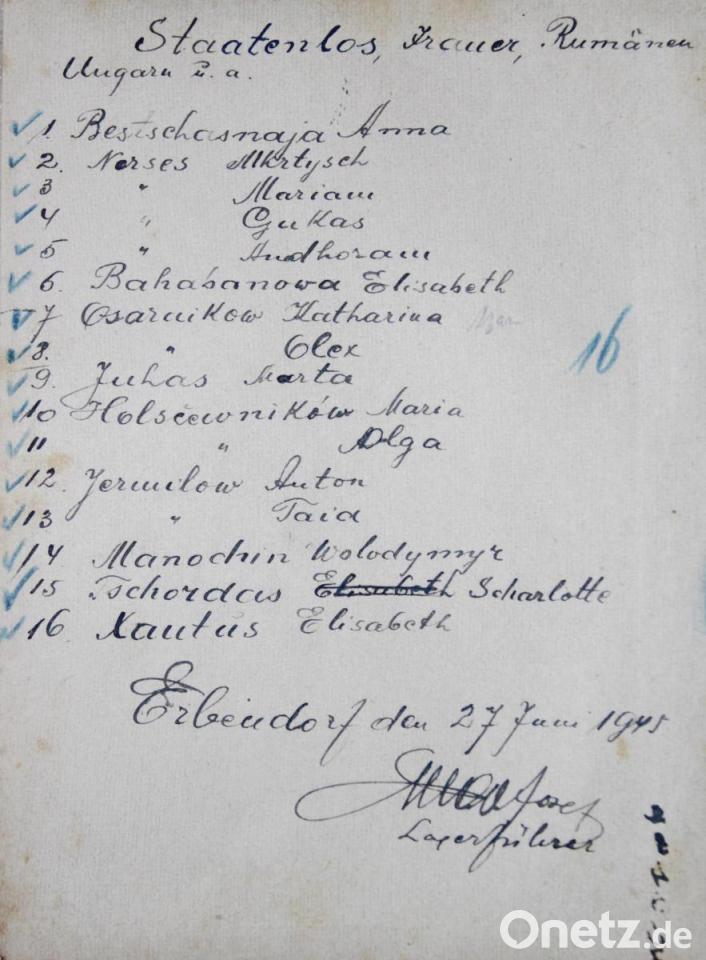 Staatenlos, Iraner, Rumänen
Ungarn u. a.
1. Bestschasnaja Anna
2. Nerses Mkrtysch
3 " Mariam
4 " Gukas
5 " Andhoram
6. Bahabanowa Elisabeth
7 Osarnikow Katharina
8. " Olex
9. Juhas Marta
10 Holsčewników Maria
11 " Olga
12. Jermilow Anton
13 " Taid
14 Manochin Wolodymyr
15 Tschordas Elisabeth Scharlotte
16 Xautus Elisabeth
16
Erbendorf den 27 Juni 1945
Josef
Lagerführer
Onetz.de